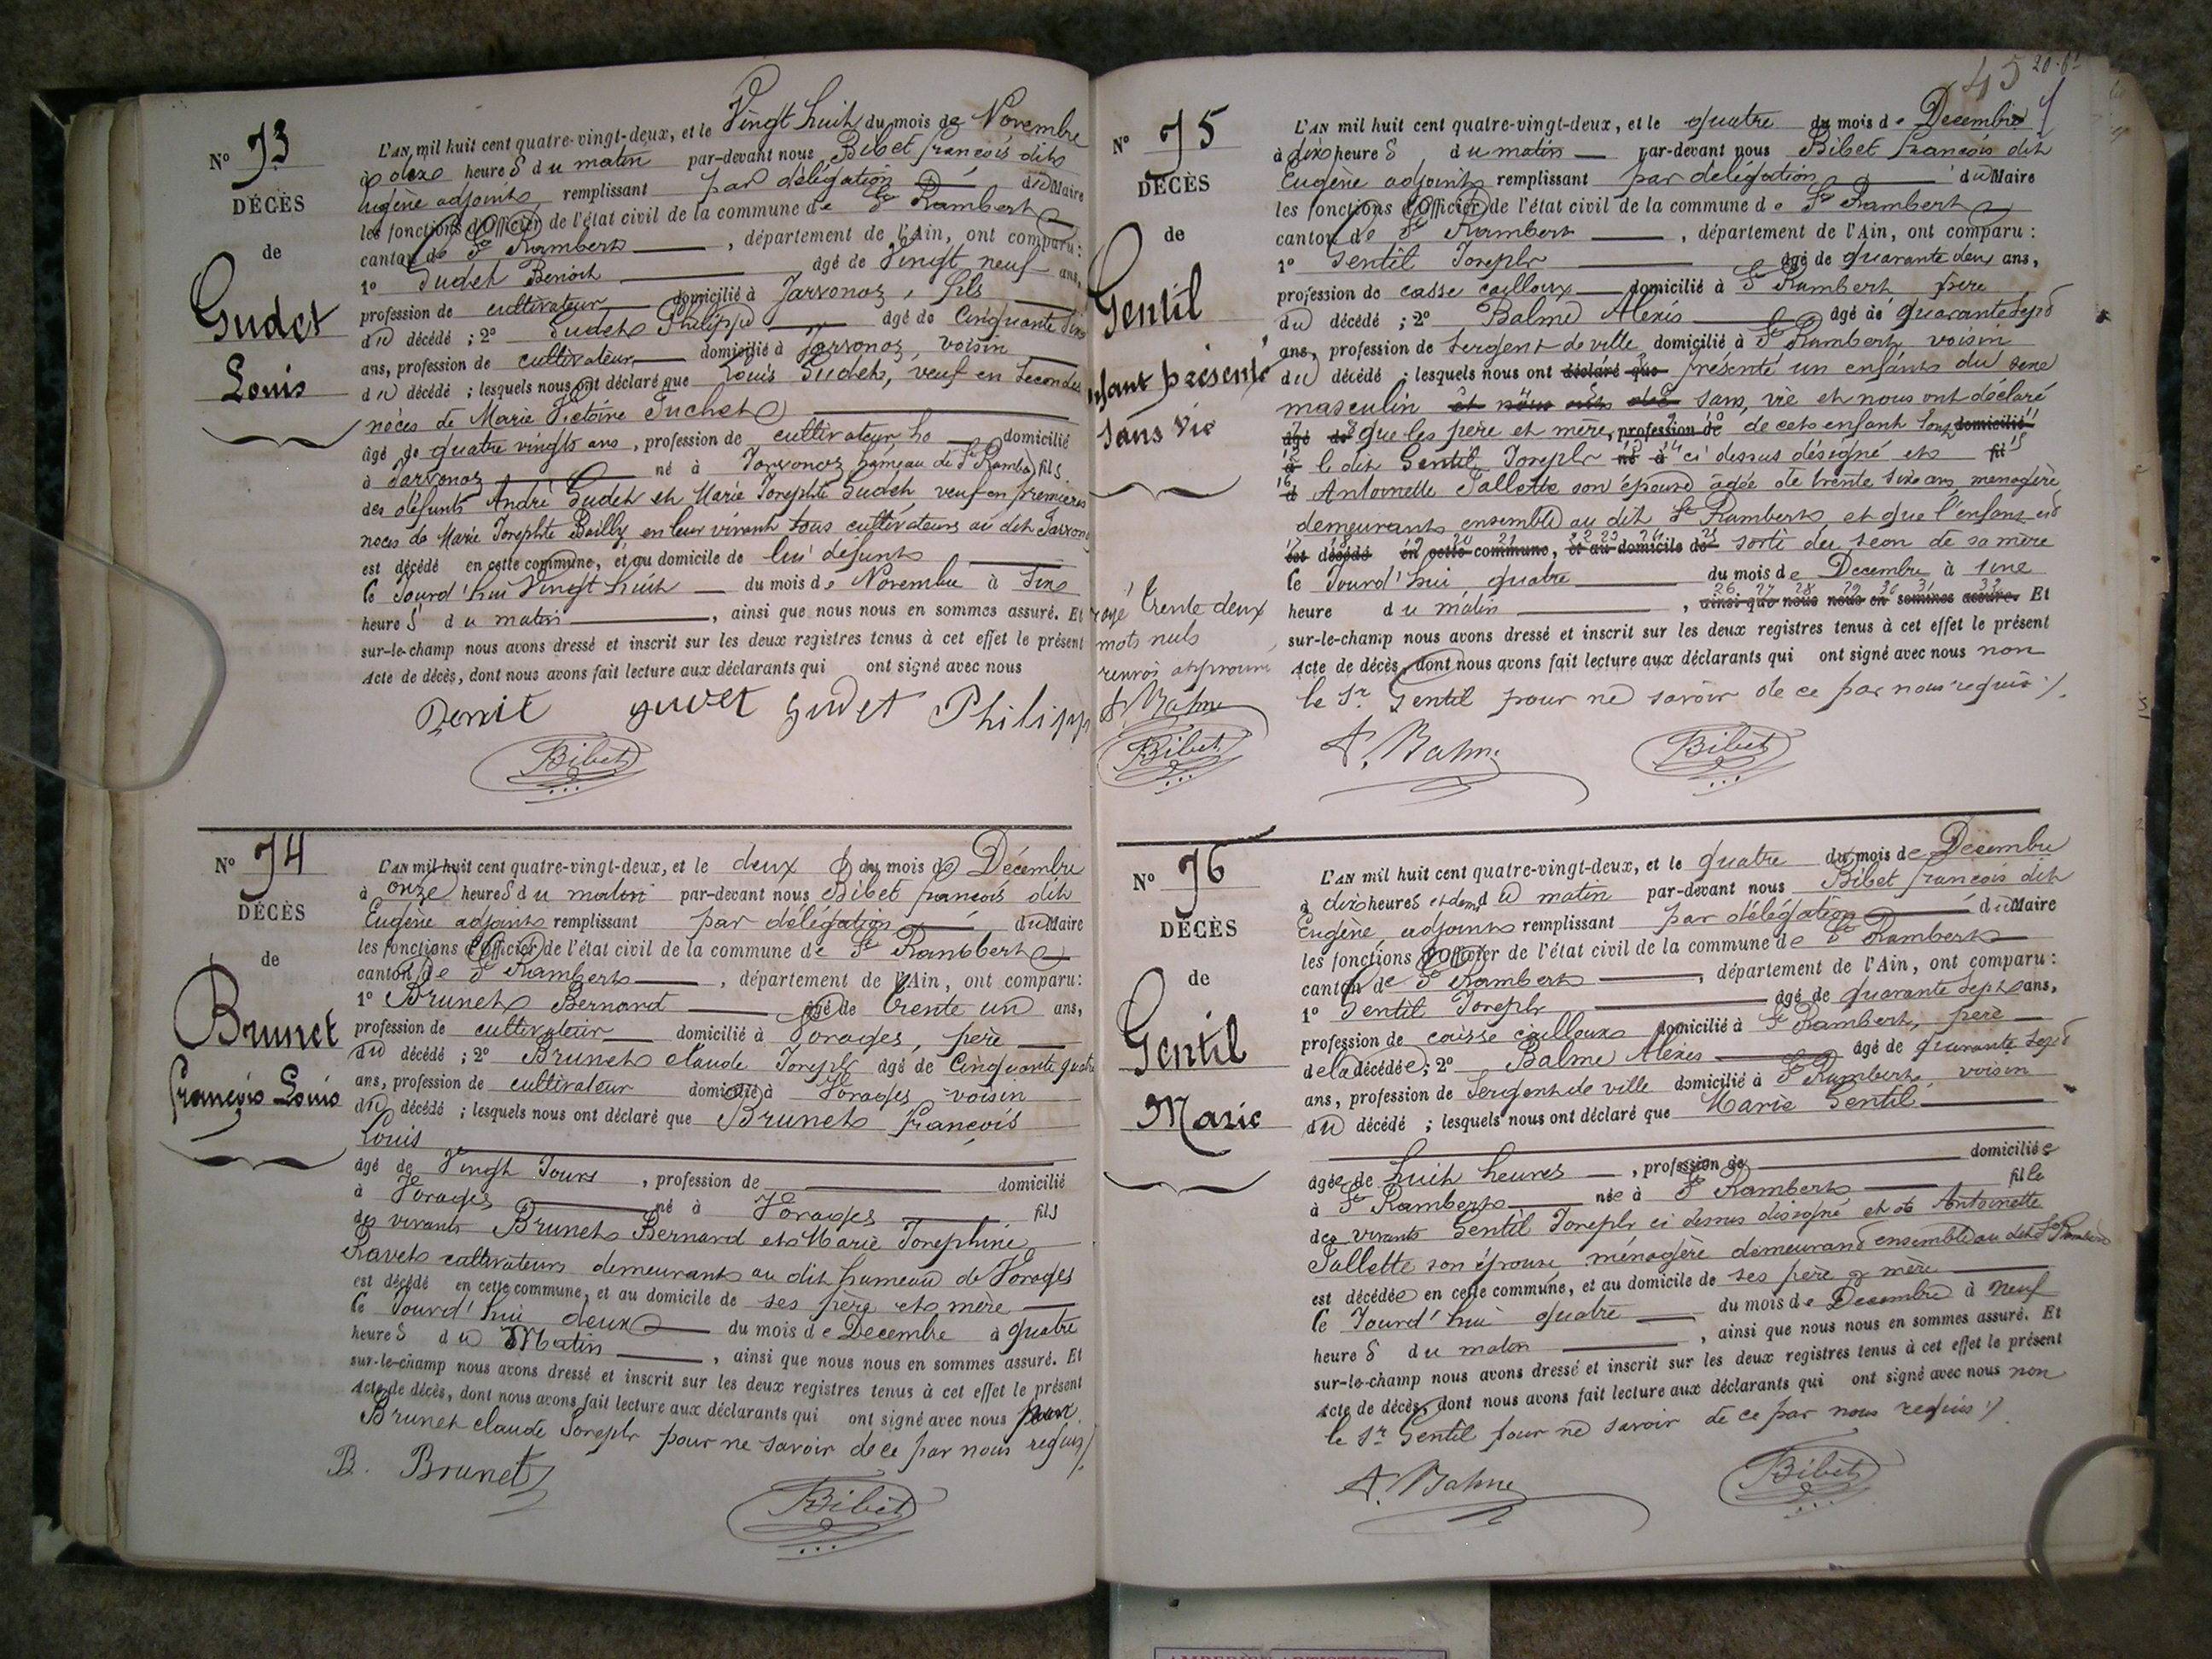 N° 73
DÉCÈS
de
Gudet
Louis
L'AN mil huit cent quatre-vingt-deux, et le Vingt huit du mois de Novembre
à dix heures du matin par-devant nous Bibet françois dit
Eugène adjoint remplissant par délégation du Maire
les fonctions d'Officier de l'état civil de la commune de St Rambert
canton de St Rambert, département de l'Ain, ont comparu :
1° Gudet Benoit âgé de Vingt neuf ans,
profession de cultivateur domicilié à Javronoz, fils
du décédé ; 2° Gudet Philippe âgé de Cinquante six
ans, profession de cultivateur domicilié à Javronoz, voisin
du décédé ; lesquels nous ont déclaré que Louis Gudet, veuf en secondes
nôces de Marie Victoire Juchet
âgé de quatre vingts ans, profession de cultivateur domicilié
à Javronoz né à Javronoz hameau de St Rambt fils
des défunts André Gudet et Marie Josephte Gudet, veuf en premières
noces de Marie Josephte Bailly en leur vivant tous cultivateurs au dit Javronoz
est décédé en cette commune, et au domicile de lui défunt
le Jourd'hui Vingt huit du mois de Novembre à six
heures du matin, ainsi que nous nous en sommes assuré. Et
sur-le-champ nous avons dressé et inscrit sur les deux registres tenus à cet effet le présent
Acte de décès, dont nous avons fait lecture aux déclarants qui ont signé avec nous
Benoit gudet gudet Philipp
Bibet
N° 74
DÉCÈS
de
Brunet
françois Louis
L'AN mil huit cent quatre-vingt-deux, et le deux du mois de Décembre
à onze heures du matin par-devant nous Bibet françois dit
Eugène adjoint remplissant par délégation du Maire
les fonctions d'Officier de l'état civil de la commune de St Rambert
canton de St Rambert, département de l'Ain, ont comparu :
1° Brunet Bernard âgé de trente un ans,
profession de cultivateur domicilié à Vorages, père
du décédé ; 2° Brunet claude Joseph âgé de Cinquante quatre
ans, profession de cultivateur domicilié à Vorages voisin
du décédé ; lesquels nous ont déclaré que Brunet françois
Louis
âgé de Vingt Jours, profession de domicilié
à Vorages né à Vorages fils
des vivants Brunet Bernard et Marie Josephine
Ravet cultivateurs demeurant au dit hameau de Vorages
est décédé en cette commune, et au domicile de ses père et mère
le Jourd'hui deux du mois de Decembre à quatre
heures du Matin, ainsi que nous nous en sommes assuré. Et
sur-le-champ nous avons dressé et inscrit sur les deux registres tenus à cet effet le présent
Acte de décès, dont nous avons fait lecture aux déclarants qui ont signé avec nous non
Brunet claude Joseph pour ne savoir de ce par nous requis
B. Brunet
Bibet
45 20-6t
N° 75
DÉCÈS
de
Gentil
enfant présenté
sans vie
L'AN mil huit cent quatre-vingt-deux, et le quatre du mois de Decembre
à dix heures du matin par-devant nous Bibet françois dit
Eugène adjoint remplissant par délégation du Maire
les fonctions d'Officier de l'état civil de la commune de St Rambert
canton de St Rambert, département de l'Ain, ont comparu :
1° Gentil Joseph âgé de quarante deux ans,
profession de casse cailloux domicilié à St Rambert père
du décédé ; 2° Balme Alexis âgé de quarante sept
ans, profession de Sergent de ville domicilié à St Rambert voisin
du décédé ; lesquels nous ont déclaré que présenté un enfant du sexe
masculin sans vie et nous ont déclaré
âgé de que les père et mère, profession de de cet enfant sont domicilié
à le dit Gentil Joseph né à ci dessus désigné et fil
d Antoinette Jallette son épouse âgée de trente six ans, menagère
demeurant ensemble au dit St Rambert et que l'enfant est
est décédé en cette commune, et au domicile de sorti du sein de sa mère
le Jourd'hui quatre du mois de Decembre à une
heure du matin, ainsi que nous nous en sommes assuré. Et
sur-le-champ nous avons dressé et inscrit sur les deux registres tenus à cet effet le présent
Acte de décès, dont nous avons fait lecture aux déclarants qui ont signé avec nous non
le Sr Gentil pour ne savoir de ce par nous requis
rayé trente deux
mots nuls
renvoi approuvé
A. Balme
Bibet
A. Balme
Bibet
N° 76
DÉCÈS
de
Gentil
Marie
L'AN mil huit cent quatre-vingt-deux, et le quatre du mois de Décembre
à dix heures et demi du matin par-devant nous Bibet françois dit
Eugène adjoint remplissant par délégation du Maire
les fonctions d'Officier de l'état civil de la commune de St Rambert
canton de St Rambert, département de l'Ain, ont comparu :
1° Gentil Joseph âgé de quarante sept ans,
profession de caisse cailloux domicilié à St Rambert, père
de la décédée ; 2° Balme Alexis âgé de quarante sept
ans, profession de Sergent de ville domicilié à St Rambert, voisin
du décédé ; lesquels nous ont déclaré que Marie Gentil
âgée de huit heures, profession de domiciliée
à St Rambert née à St Rambert fille
des vivants Gentil Joseph ci dessus désigné et de Antoinette
Jallette son épouse ménagère demeurant ensemble au dit St Rambert
est décédée en cette commune, et au domicile de ses père & mère
le Jourd'hui quatre du mois de Decembre à neuf
heures du matin, ainsi que nous nous en sommes assuré. Et
sur-le-champ nous avons dressé et inscrit sur les deux registres tenus à cet effet le présent
Acte de décès, dont nous avons fait lecture aux déclarants qui ont signé avec nous non
le Sr Gentil pour ne savoir de ce par nous requis
A. Balme
Bibet